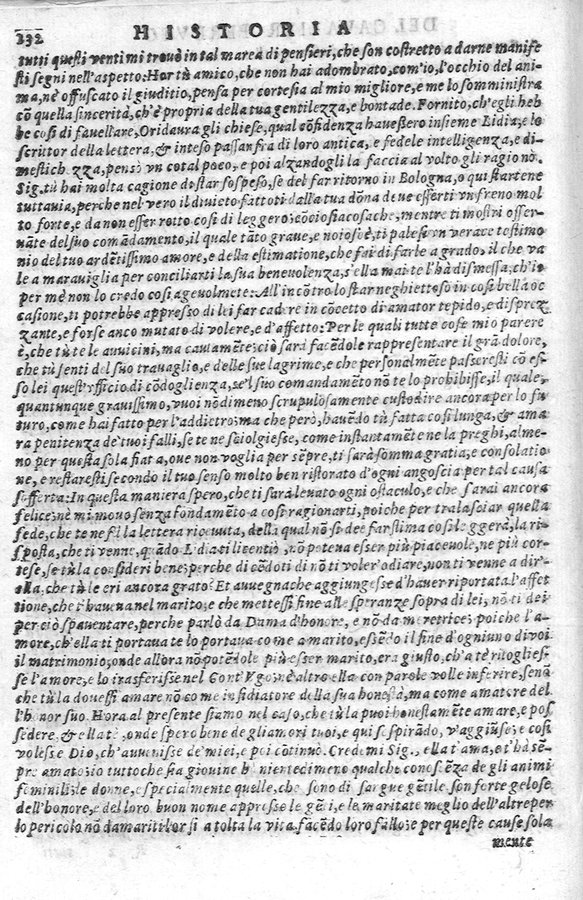 232 HISTORIA
tutti questi venti mi trouò in tal marea di pensieri, che son costretto a darne manife
sti segni nell'aspetto: Hor tù amico, che non hai adombrato, com'io, l'occhio del ani-
ma, nè offuscato il giuditio, pensa per cortesia al mio migliore, e me lo somministra
cõ quella sincerità, ch'è propria della tua gentilezza, e bontade. Fornito, ch'egli heb
be cosi di fauellare, Oridaura gli chiese, qual cõfidenza hauessero insieme Lidia, e lo
scrittor della lettera, & inteso passar fra di loro antica, e fedele intelligenza, e di-
mestichezza, pensò vn cotal poco, e poi alzandogli la faccia al volto gli ragionò.
Sig. tù hai molta cagione di star sospeso, se del far ritorno in Bologna, o qui startene
tuttauia, perche nel vero il diuieto fattoti dalla tua dõna deue esserti vn freno mol
to forte, e da non esser rotto cosi di leggero; cõciosiacosache, mentre ti mostri osser-
uãte del suo comãdamento, il quale tãto graue, e noioso è, ti palesi vn verace testimo
nio del tuo ardẽtissimo amore, e della estimatione, che fai di farle a grado, il che va
le a marauiglia per conciliarti la sua beneuolenza, s'ella mai te l'hà dismessa; ch'io
per mè non lo credo cosi ageuolmete: All'incõtro lo star neghiettoso in cosi bella oc
casione, ti potrebbe appresso di lei far cadere in cõcetto di amator tepido, e disprez
zante, e forse anco mutato di volere, e d'affetto: Per le quali tutte cose mio parere
è, che tù te le auuicini, ma cautamẽte; ciò sarà facẽdole rappresentare il grã dolore,
che tù senti del suo trauaglio, e delle sue lagrime, e che personalmẽte passeresti cõ es-
so lei quest'vfficio di cõdoglienza, se'l suo comandamẽto nõ te lo prohibisse, il quale,
quantunque grauissimo, vuoi nõdimeno scrupulosamente custodire ancora per lo fu
turo, come hai fatto per l'addietro; ma che però, hauẽdo tù fatta cosi lunga, & ama
ra penitenza de'tuoi falli, se te ne sciolgiesse, come instantamẽte ne la preghi, alme-
no per questa sola fiata, oue non voglia per sẽpre, ti sarà somma gratia, e consolatio
ne, e restaresti secondo il tuo senso molto ben ristorato d'ogni angoscia per tal causa
sofferta: In questa maniera spero, che ti sarà leuato ogni ostaculo, e che sarai ancora
felice; nè mi mouo senza fondamẽto a cosi ragionarti, poiche per tralasciar quella
fede, che te ne fà la lettera riceuuta, della qual nõ si dee far stima cosi leggera, la ri-
sposta, che ti venne, quãdo Lidia ti licentiò, nõ poteua esser più piaceuole, ne più cor-
tese, se tù la cõsideri bene; perche dicẽdoti di nõ ti voler'odiare, non ti venne a dir'
ella, che tù le eri ancora grato? Et auuegnache aggiungesse d'hauer riportata l'affet
tione, che t'haueua nel marito; e che mettessi fine alle speranze sopra di lei, nõ ti dei
per ciò spauentare, perche parlò da Dama d'honore, e nõ da meretrice; poiche l'a-
more, ch'ella ti portaua te lo portaua come a marito, essẽdo il fine d'ogniuno di voi
il matrimonio; onde allora nõ potẽdole più esser marito, era giusto, ch'a tè ritogliess-
se l'amore, e lo trasferisse nel Cont'Vgo; nè altro ella con parole volle inferire, senõ
che tù la douessi amare nõ come insidiatore della sua honestà, ma come amatore del
l'honor suo. Hora al presente siamo nel caso, che tù la puoi honestamẽte amare, e pos
sedere, & ella tè, onde spero bene de gli amori tuoi, e qui sospirãdo, v'aggiũse; e cosi
volesse Dio, ch'auuenisse de'miei, e poi cõtinuò. Credemi Sig., ella ti ama, et hà sẽ-
pre amato; io tuttoche sia giouine hò nientedimeno qualche conoscẽza de gli animi
feminili; e donne, e specialmente quelle, che sono di sangue gẽtile son forte gelose
dell'honore, e del loro buon nome appresso le gẽti, e le maritate meglio dell'altre per
lo pericolo nõ da mariti lor sia tolta la vita, facẽdo loro fallo; e per queste cause sola
mente